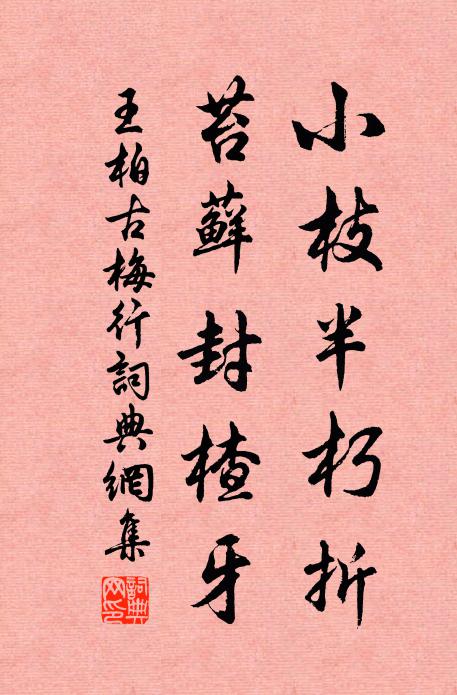 小枝半朽折
苔藓封楂牙
王柏古梅行詞典網集
詞典網印